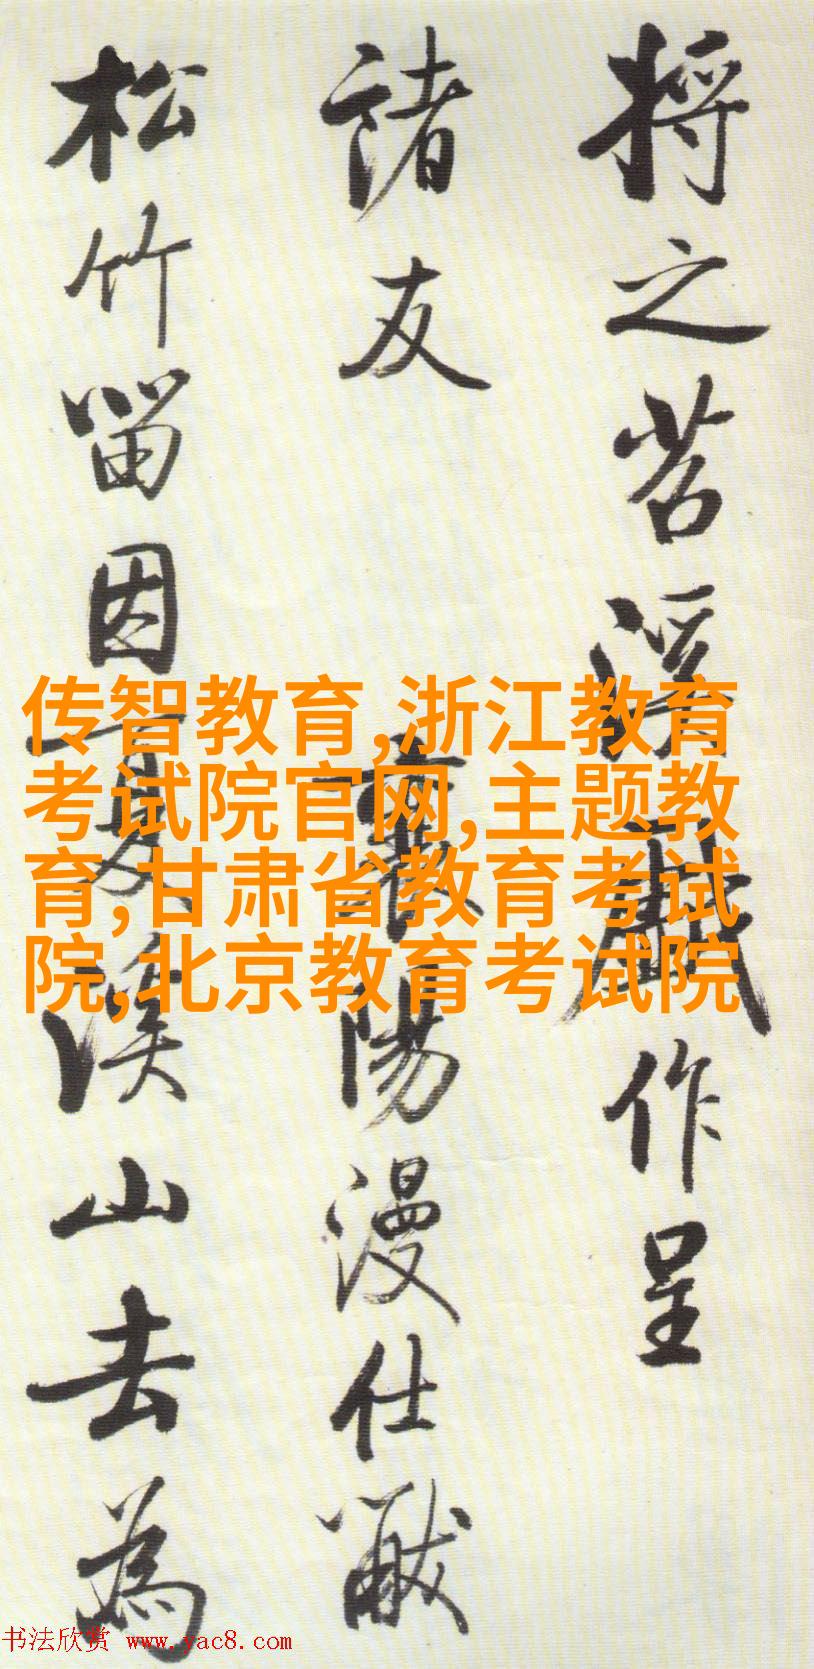 将之苕溪戲作呈
諸友 襄陽漫仕黻
松竹留因夏溪山去為
传智教育,浙江教育
考试院官网,主题教
育,甘肃省教育考试
院,北京教育考试院
书法欣赏 www.yac8.com